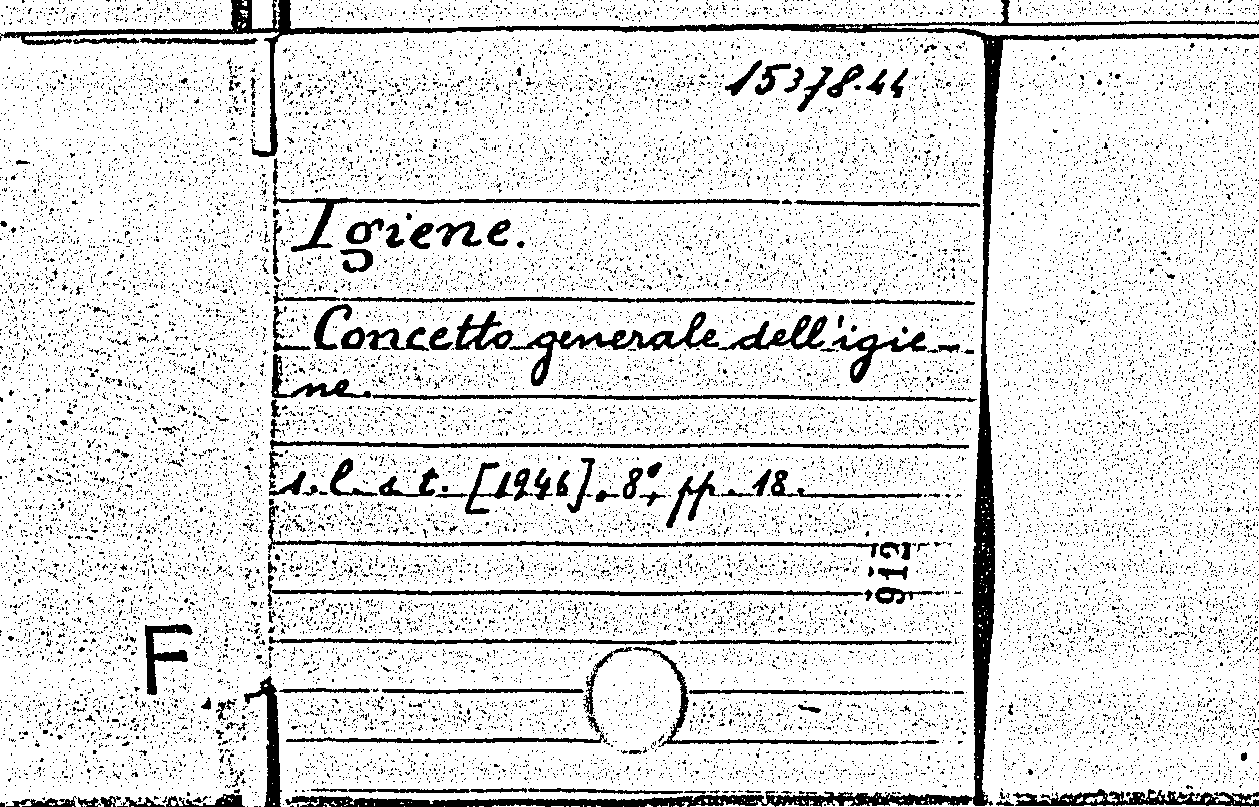 15378.44
Igiene.
Concetto generale dell'igie-
ne.
s.l. a t. [1946]. 8°, pp. 18.
912
F